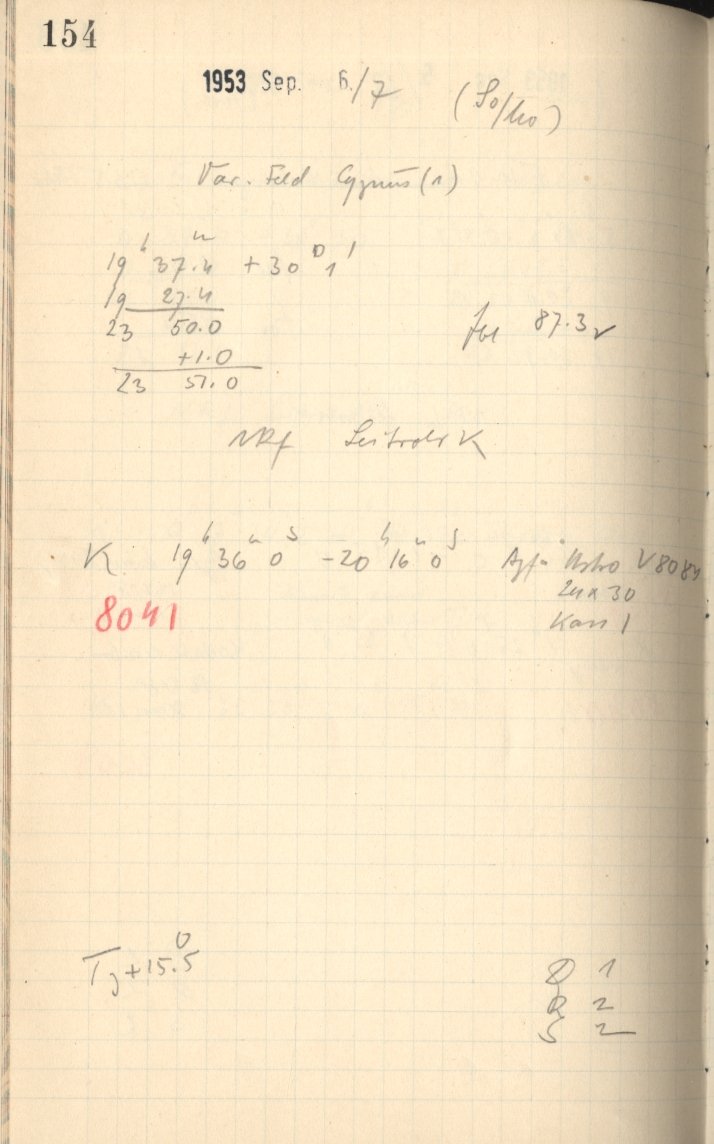 154
1953 Sep. 6./7 (So/Mo)
Var. Feld Cygnus (1)
19 h 37.4 m +30 D 1 '
19 27.4
23 50.0
87.3
+1.0
23 51.0
K 19 h 36 m 0 s -20 h 16 m 0 s Agfa Astro
24 x 30
8041
Kass 1
T +15.5
1
2
S 2